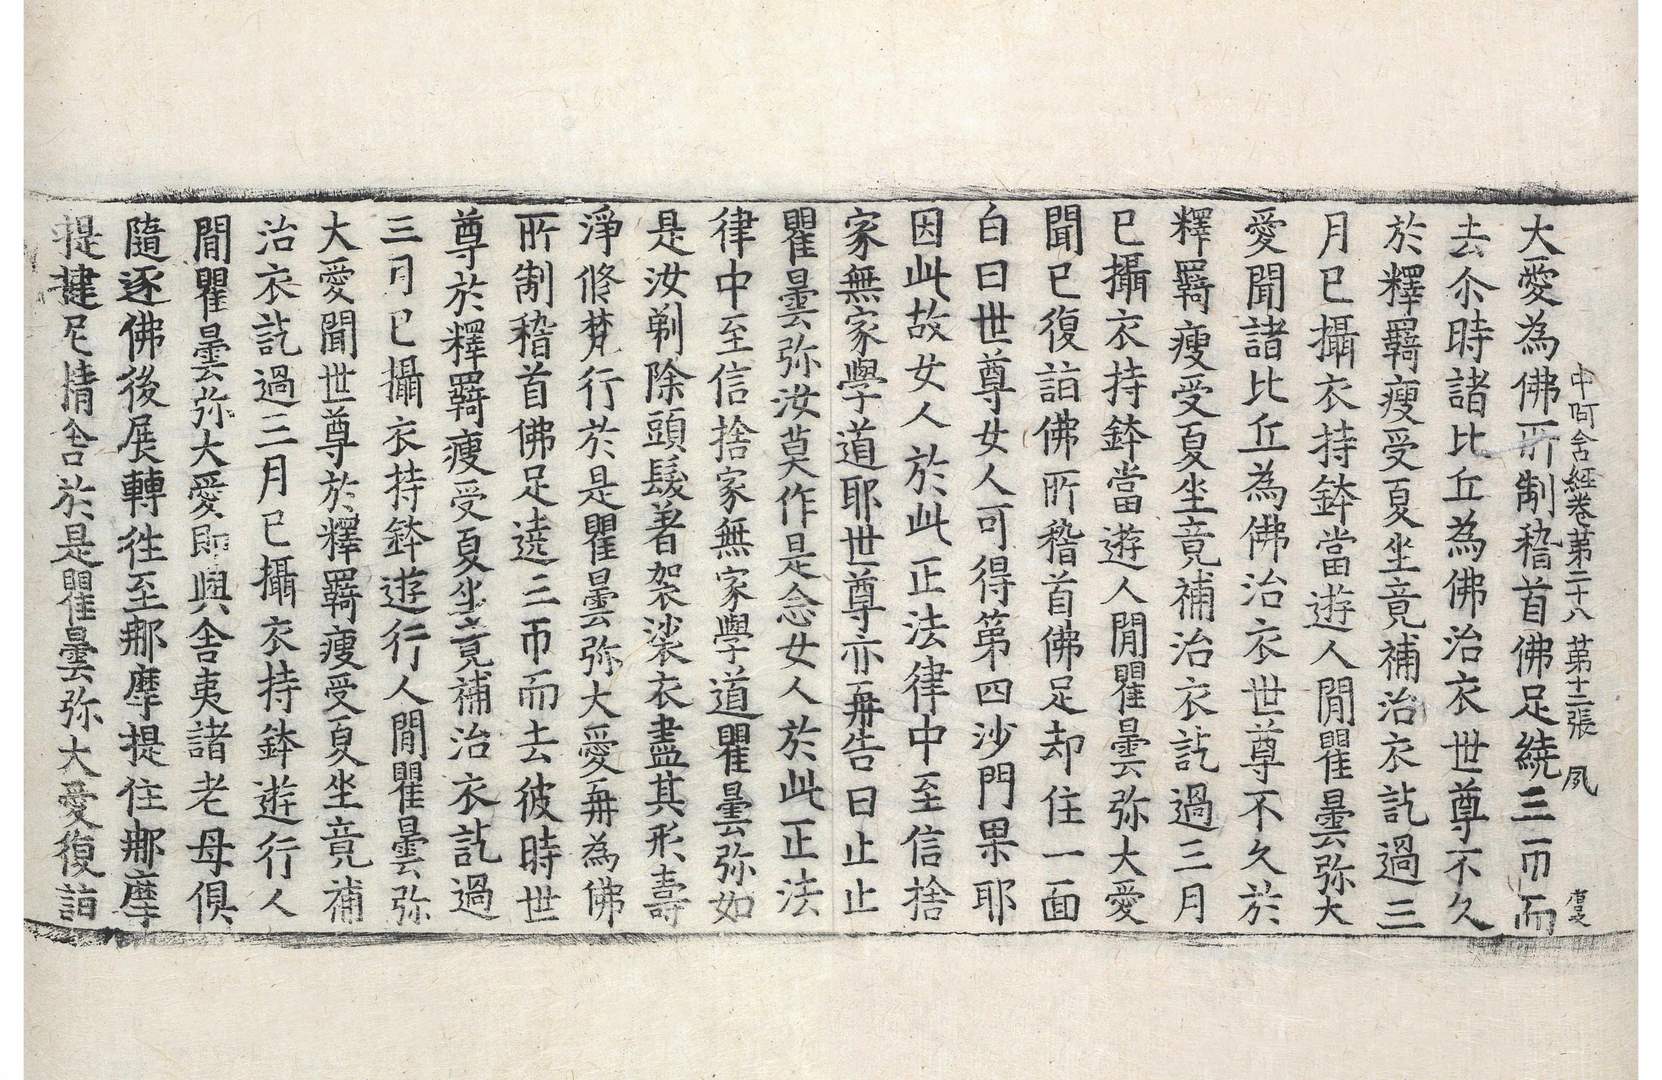 中阿含經卷第二十八 第十二張 夙
大愛為佛所制稽首佛足繞三帀而
去尒時諸比丘為佛治衣世尊不久
於釋羇瘦受夏坐竟補治衣訖過三
月已攝衣持鉢當遊人閒瞿曇弥大
愛聞諸比丘為佛治衣世尊不久於
釋羇瘦受夏坐竟補治衣訖過三月
已攝衣持鉢當遊人閒瞿曇弥大愛
聞已復詣佛所稽首佛足却住一面
白曰世尊女人可得第四沙門果耶
因此故女人於此正法律中至信捨
家無家學道耶世尊亦再告曰止止
瞿曇弥汝莫作是念女人於此正法
律中至信捨家無家學道瞿曇弥如
是汝剃除頭髮著袈裟衣盡其形壽
淨修梵行於是瞿曇弥大愛再為佛
所制稽首佛足遶三帀而去彼時世
尊於釋羇瘦受夏坐竟補治衣訖過
三月已攝衣持鉢遊行人閒瞿曇弥
大愛聞世尊於釋羇瘦受夏坐竟補
治衣訖過三月已攝衣持鉢遊行人
閒瞿曇弥大愛即與舍夷諸老母俱
隨逐佛後展轉往至那摩提住那摩
提揵尼精舍於是瞿曇弥大愛復詣